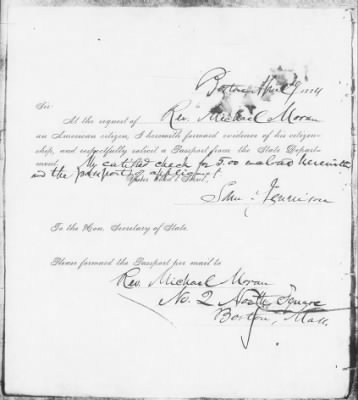 Boston, April 9
Sir:
At the request of Rev. Michael Moran
an American citizen, I herewith forward evidence of his citizen-
ship, and respectfully solicit a Passport from the State Depart-
ment. My certified check for 5.00 enclosed herewith
and the passport applicant.
To the Hon. Secretary of State.
Please forward the Passport per mail to
Rev. Michael Moran
No. 2 North Square
Boston, Mass.